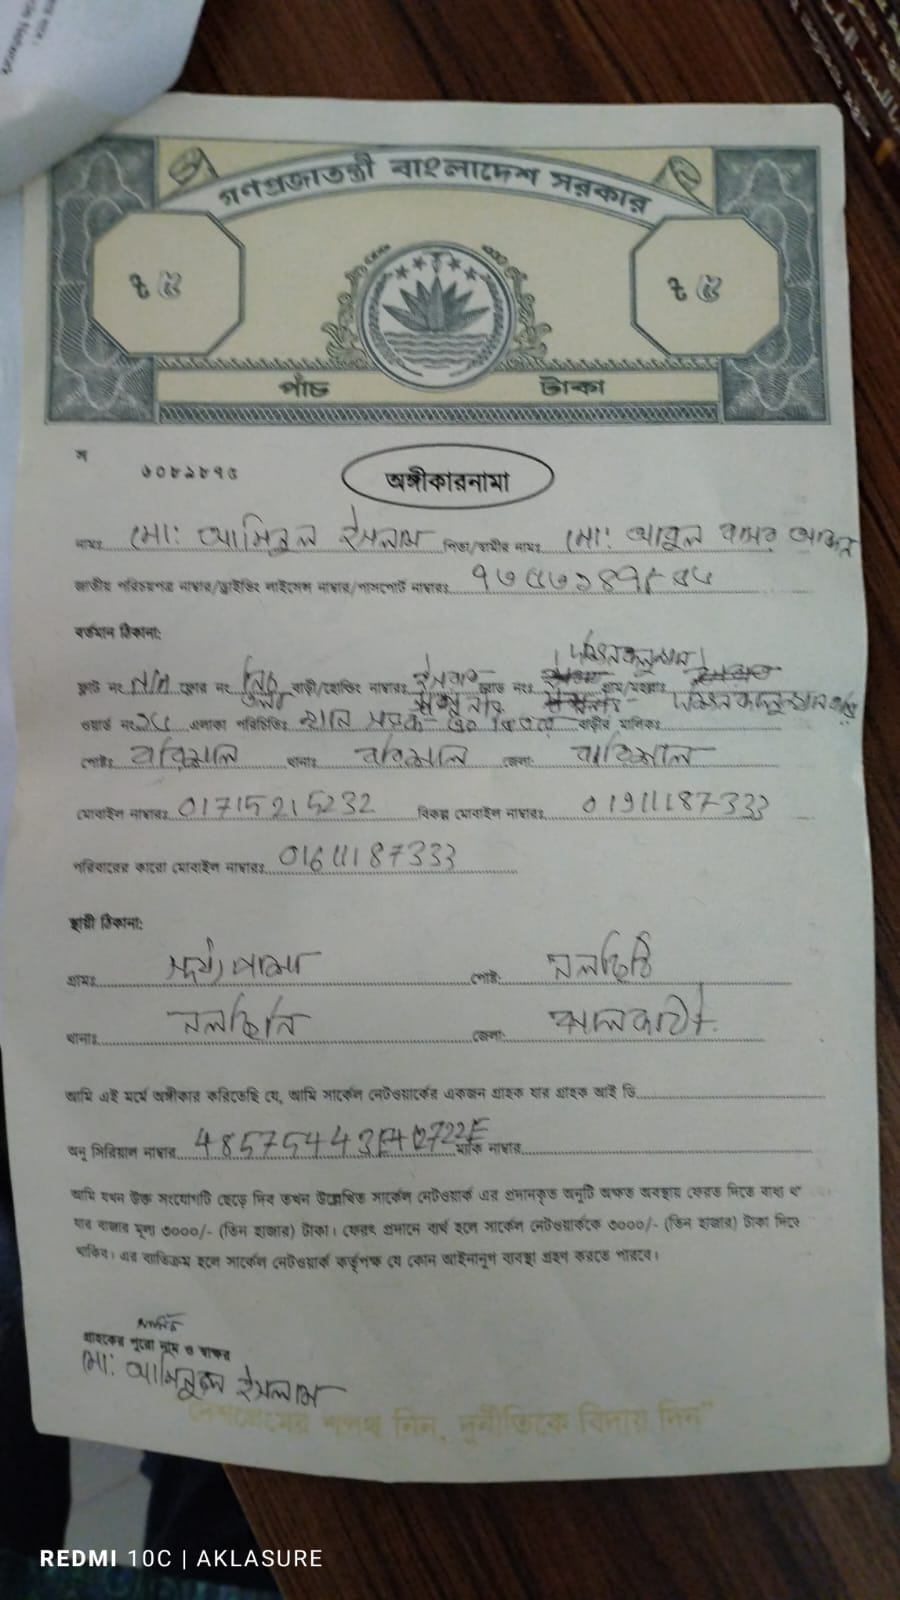 গণপ্রজাতন্ত্রী বাংলাদেশ সরকার
৳ ৫ ৳ ৫
পাঁচ টাকা
অঙ্গীকারনামা
নামঃ মো: আমিনুল ইসলাম পিতা/স্বামীর নামঃ মো: আবুল বাসার
জাতীয় পরিচয়পত্র নাম্বার/ড্রাইভিং লাইসেন্স নাম্বার/পাসপোর্ট নাম্বারঃ
বর্তমান ঠিকানা:
ফ্লাট নং N/A ফ্লোর নং বাড়ী/হোল্ডিং নাম্বারঃ রোড নংঃ গ্রাম/মহল্লাঃ
ওয়ার্ড নং এলাকা পরিচিতিঃ বাড়ীর মালিকঃ
পোষ্টঃ বরিশাল থানাঃ বরিশাল জেলা: বরিশাল
মোবাইল নাম্বারঃ 01715215232 বিকল্প মোবাইল নাম্বারঃ 01911187333
পরিবারের কারো মোবাইল নাম্বারঃ 01611187333
স্থায়ী ঠিকানা:
গ্রামঃ পোষ্ট: নলছিটি
থানাঃ নলছিটি জেলা: ঝালকাঠী
আমি এই মর্মে অঙ্গীকার করিতেছি যে, আমি সার্কেল নেটওয়ার্কের একজন গ্রাহক যার গ্রাহক আই ডি
অনু সিরিয়াল নাম্বার ম্যাক নাম্বার
আমি যখন উক্ত সংযোগটি ছেড়ে দিব তখন উল্লেখিত সার্কেল নেটওয়ার্ক এর প্রদানকৃত অনুটি অক্ষত অবস্থায় ফেরত দিতে বাধ্য
যার বাজার মূল্য ৩০০০/- (তিন হাজার) টাকা। ফেরৎ প্রদানে ব্যর্থ হলে সার্কেল নেটওয়ার্ককে ৩০০০/- (তিন হাজার) টাকা দিতে
থাকিব। এর ব্যতিক্রম হলে সার্কেল নেটওয়ার্ক কর্তৃপক্ষ যে কোন আইনানুগ ব্যবস্থা গ্রহণ করতে পারবে।
গ্রাহকের পুরো নাম ও স্বাক্ষর
মো: আমিনুল ইসলাম
দেশপ্রেমের শপথ নিন, দুর্নীতিকে বিদায় দিন"
REDMI 10C | AKLASURE